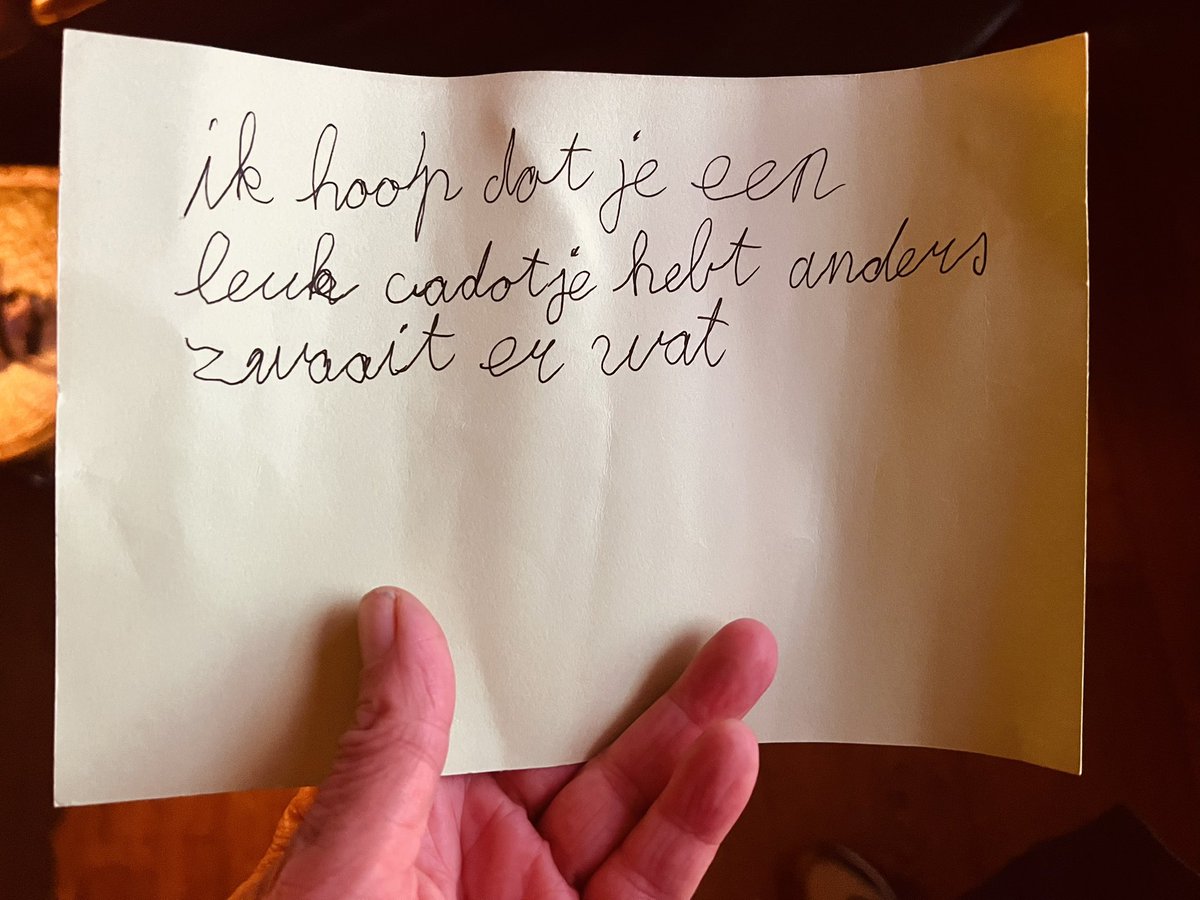 ik hoop dat je een
leuk cadotje hebt anders
zwaait er wat